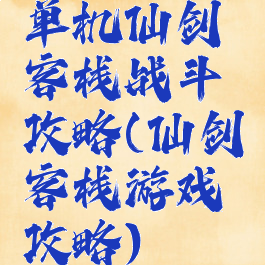 单机仙剑
客栈战斗
攻略(仙剑
客栈游戏
攻略)